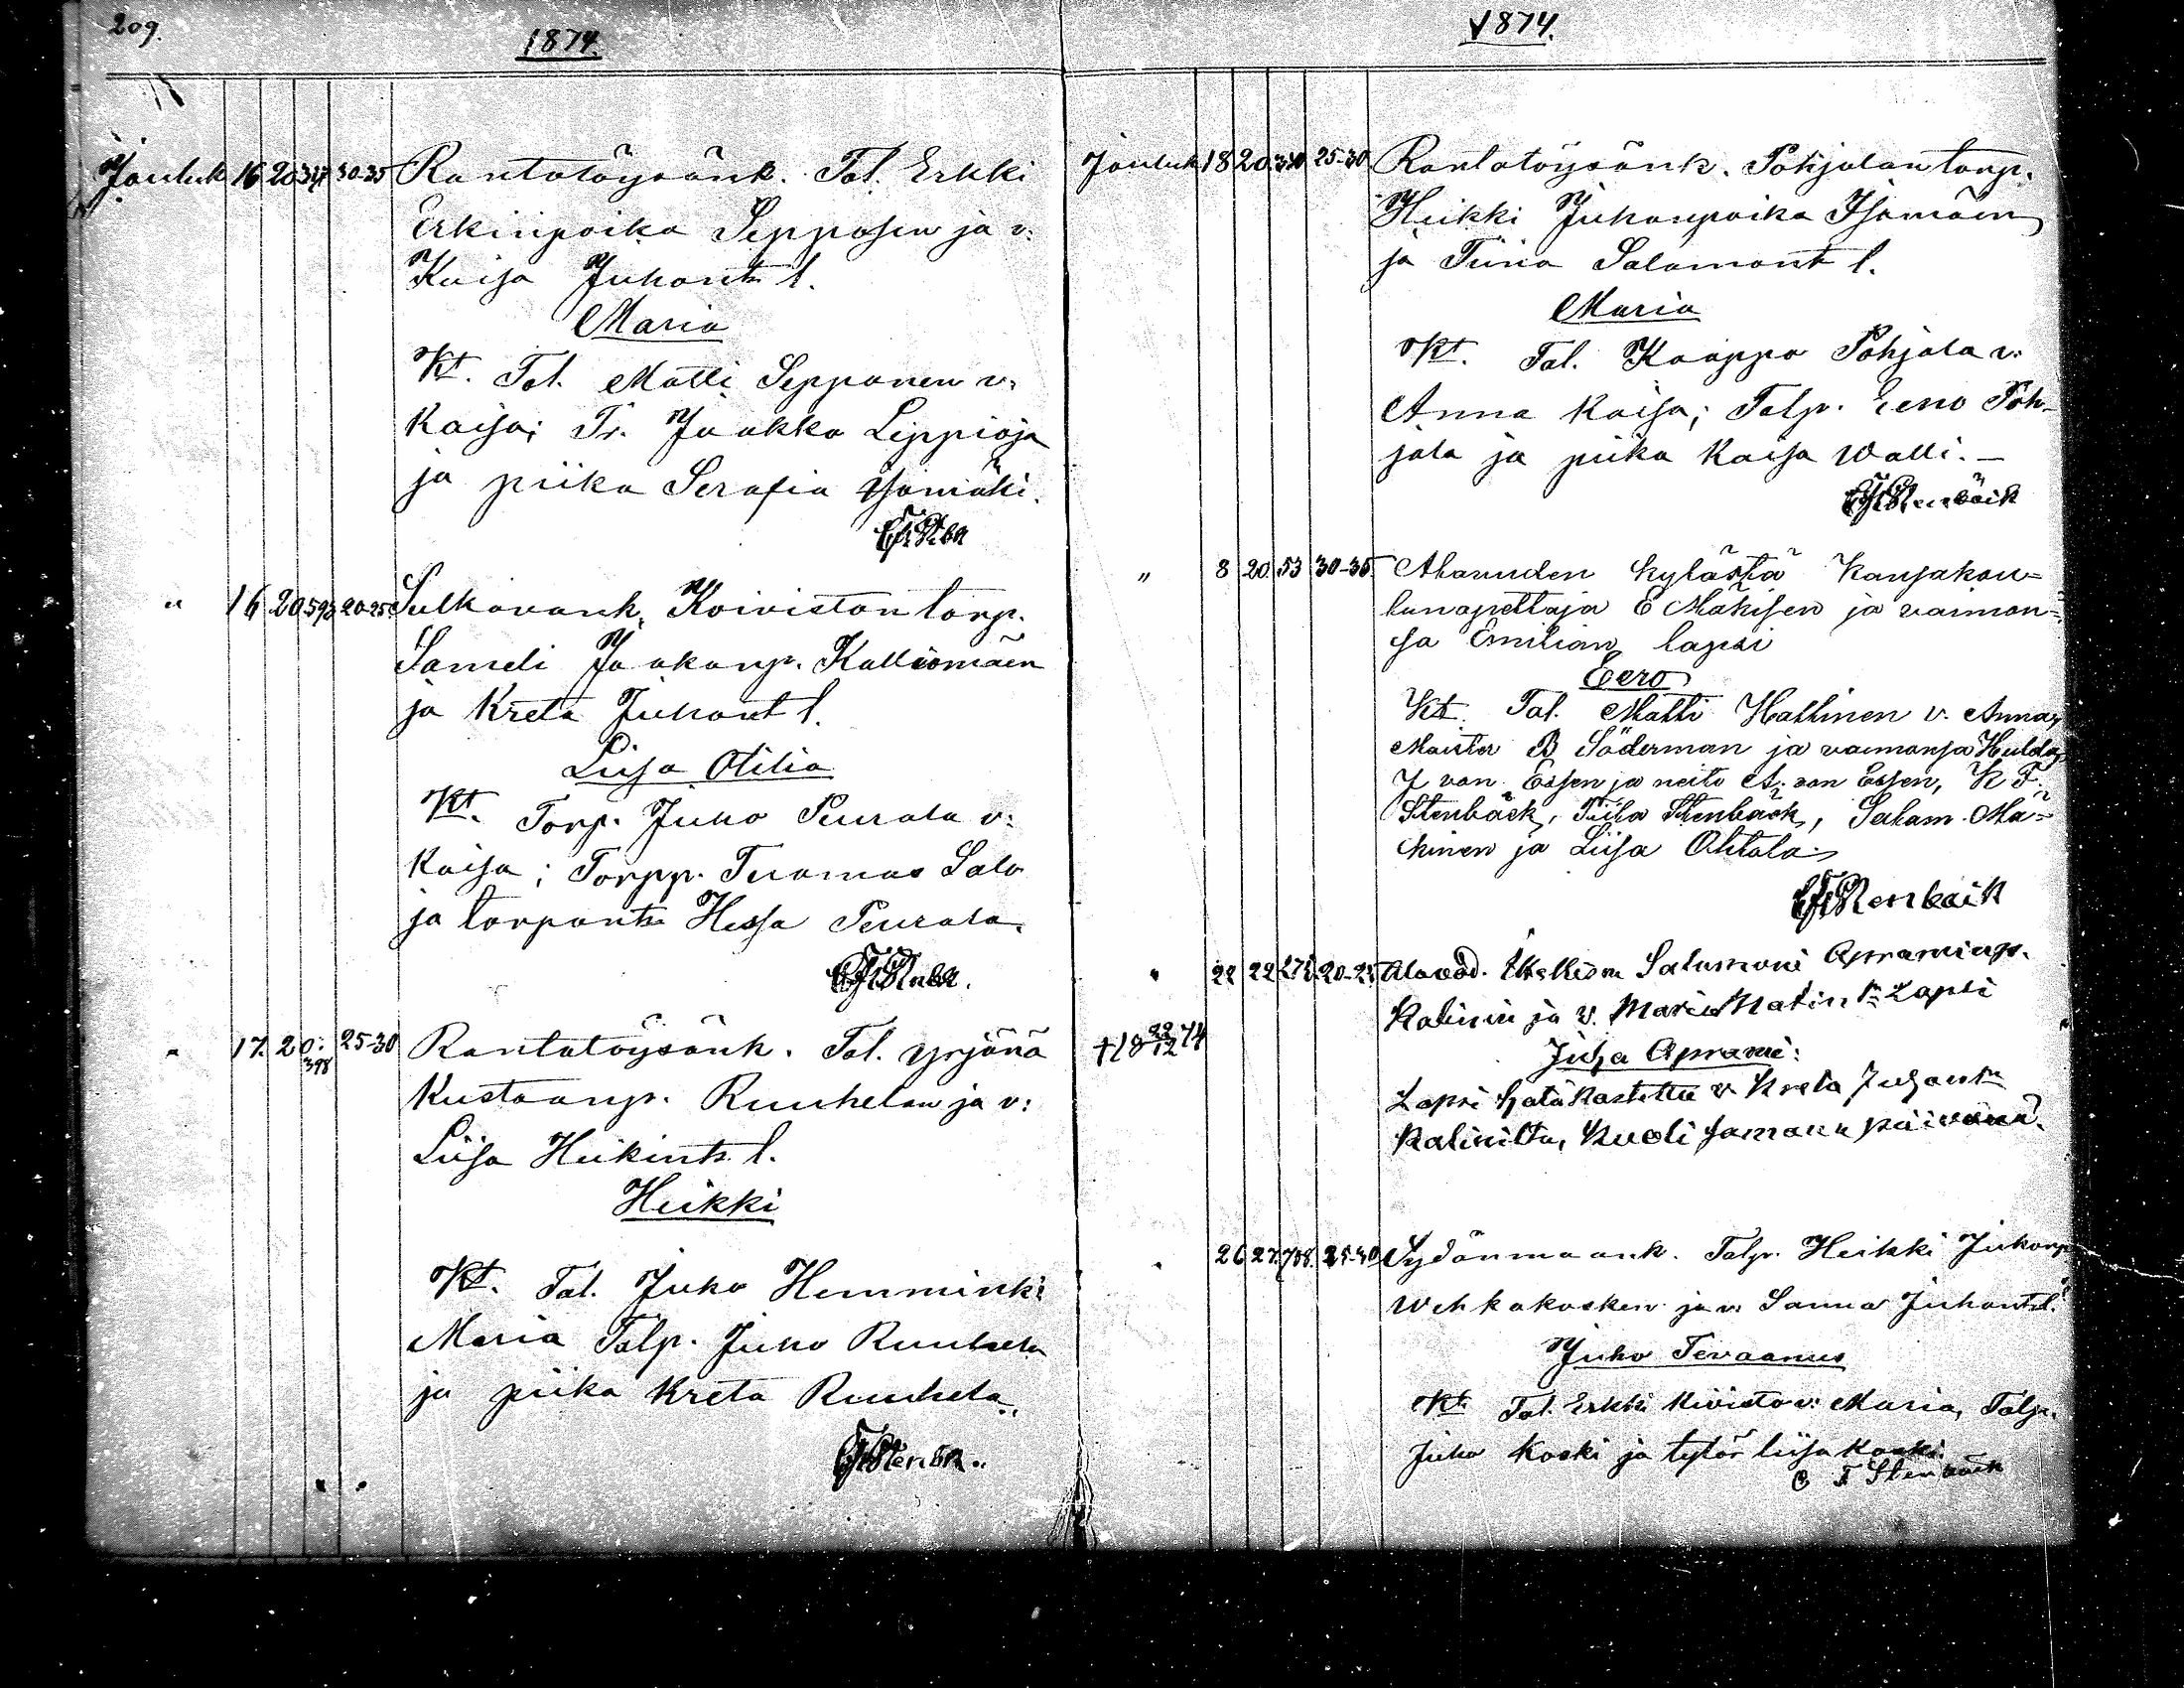 209.
1874.
Jouluk 16 20 30-35 Rantatöysänk. Tal. Erkki
Erkinpoika Sepposen ja v:
Kaisa Juhant l.
Maria
Kt. Tal. Matti Sepponen v:
Kaisa; Tr. Jaakko Leppioja
ja piika Serafia Isomäki.
" 16 20 593 20-25 Sulkavank. Koiviston torp.
Sameli Jaakonp. Kalliomäen
ja Kreta Juhant l.
Liisa Otilia
Kt. Torp. Juho Peurala v:
Kaisa; Torpp. Tuomas Salo
ja torpants Hessa Peurala.
" 17. 20. 398 25-30 Rantatöysänk. Tal. Yrjänä
Kustaanp. Ruuhelan ja v:
Liisa Heikints l.
Heikki
Kt. Tal. Juho Hemminki
Maria Talp. Juho Ruuhela
ja piika Kreta Ruuhela.
1874.
Jouluk 18 20 25-30 Rantatöysänk. Pohjolan torp.
Heikki Juhonpoika Isomäen
ja Tiina Salamont l.
Maria
Kt. Tal. Kaappo Pohjola v:
Anna Kaisa; Talp. Eeno Poh-
jola ja piika Kaisa Walli. –
E F Stenbäck
" 8 20 53 30-35 Alavuden kylästä Kansakou-
lunopettaja E Mäkisen ja vaimon-
sa Emilian lapsi
Eero
Kt. Tal. Matti Hallinen v. Anna,
Maister B Söderman ja vaimonsa Hulda,
J von Essen ja neito A. von Essen, K F.
Stenbäck, Tilda Stenbäck, Salam. Mä-
kinen ja Liisa Ohtola
E F Stenbäck
" 22 22 272 20-25 Alavud. Salomoni Apraminp.
Kalinin ja v. Maria Matin tr Lapsi
+ 18 22/12 74
Juha Aprami:
Lapsi hätäkastettu v. Kreta Juhantr
Kalinilta, Kuoli samana päivänä.
" 26 27. 708. 25-30 Sydänmaank. Talp. Heikki Juhonp
Wehkakosken ja v: Sanna Juhantsl.
Juho Tevaanus
Kt. Tal. Erkki Kivisto v: Maria, Talp.
Juho Koski ja tytär liisa Koski.
E F Stenbäck